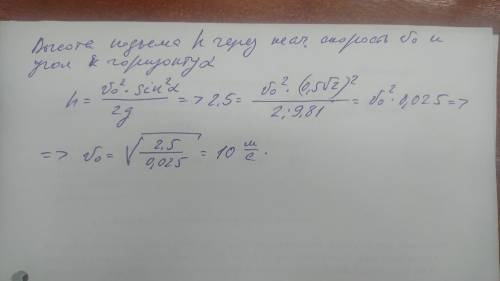 Высота подъема h через нач. скорость v₀ и
угол к горизонту α
h = v₀² · sin²α / 2g => 2,5 = v₀² · (0,5√2)² / 2 · 9,81 = v₀² · 0,025 =>
=> v₀ = √(2,5 / 0,025) = 10 м/с.